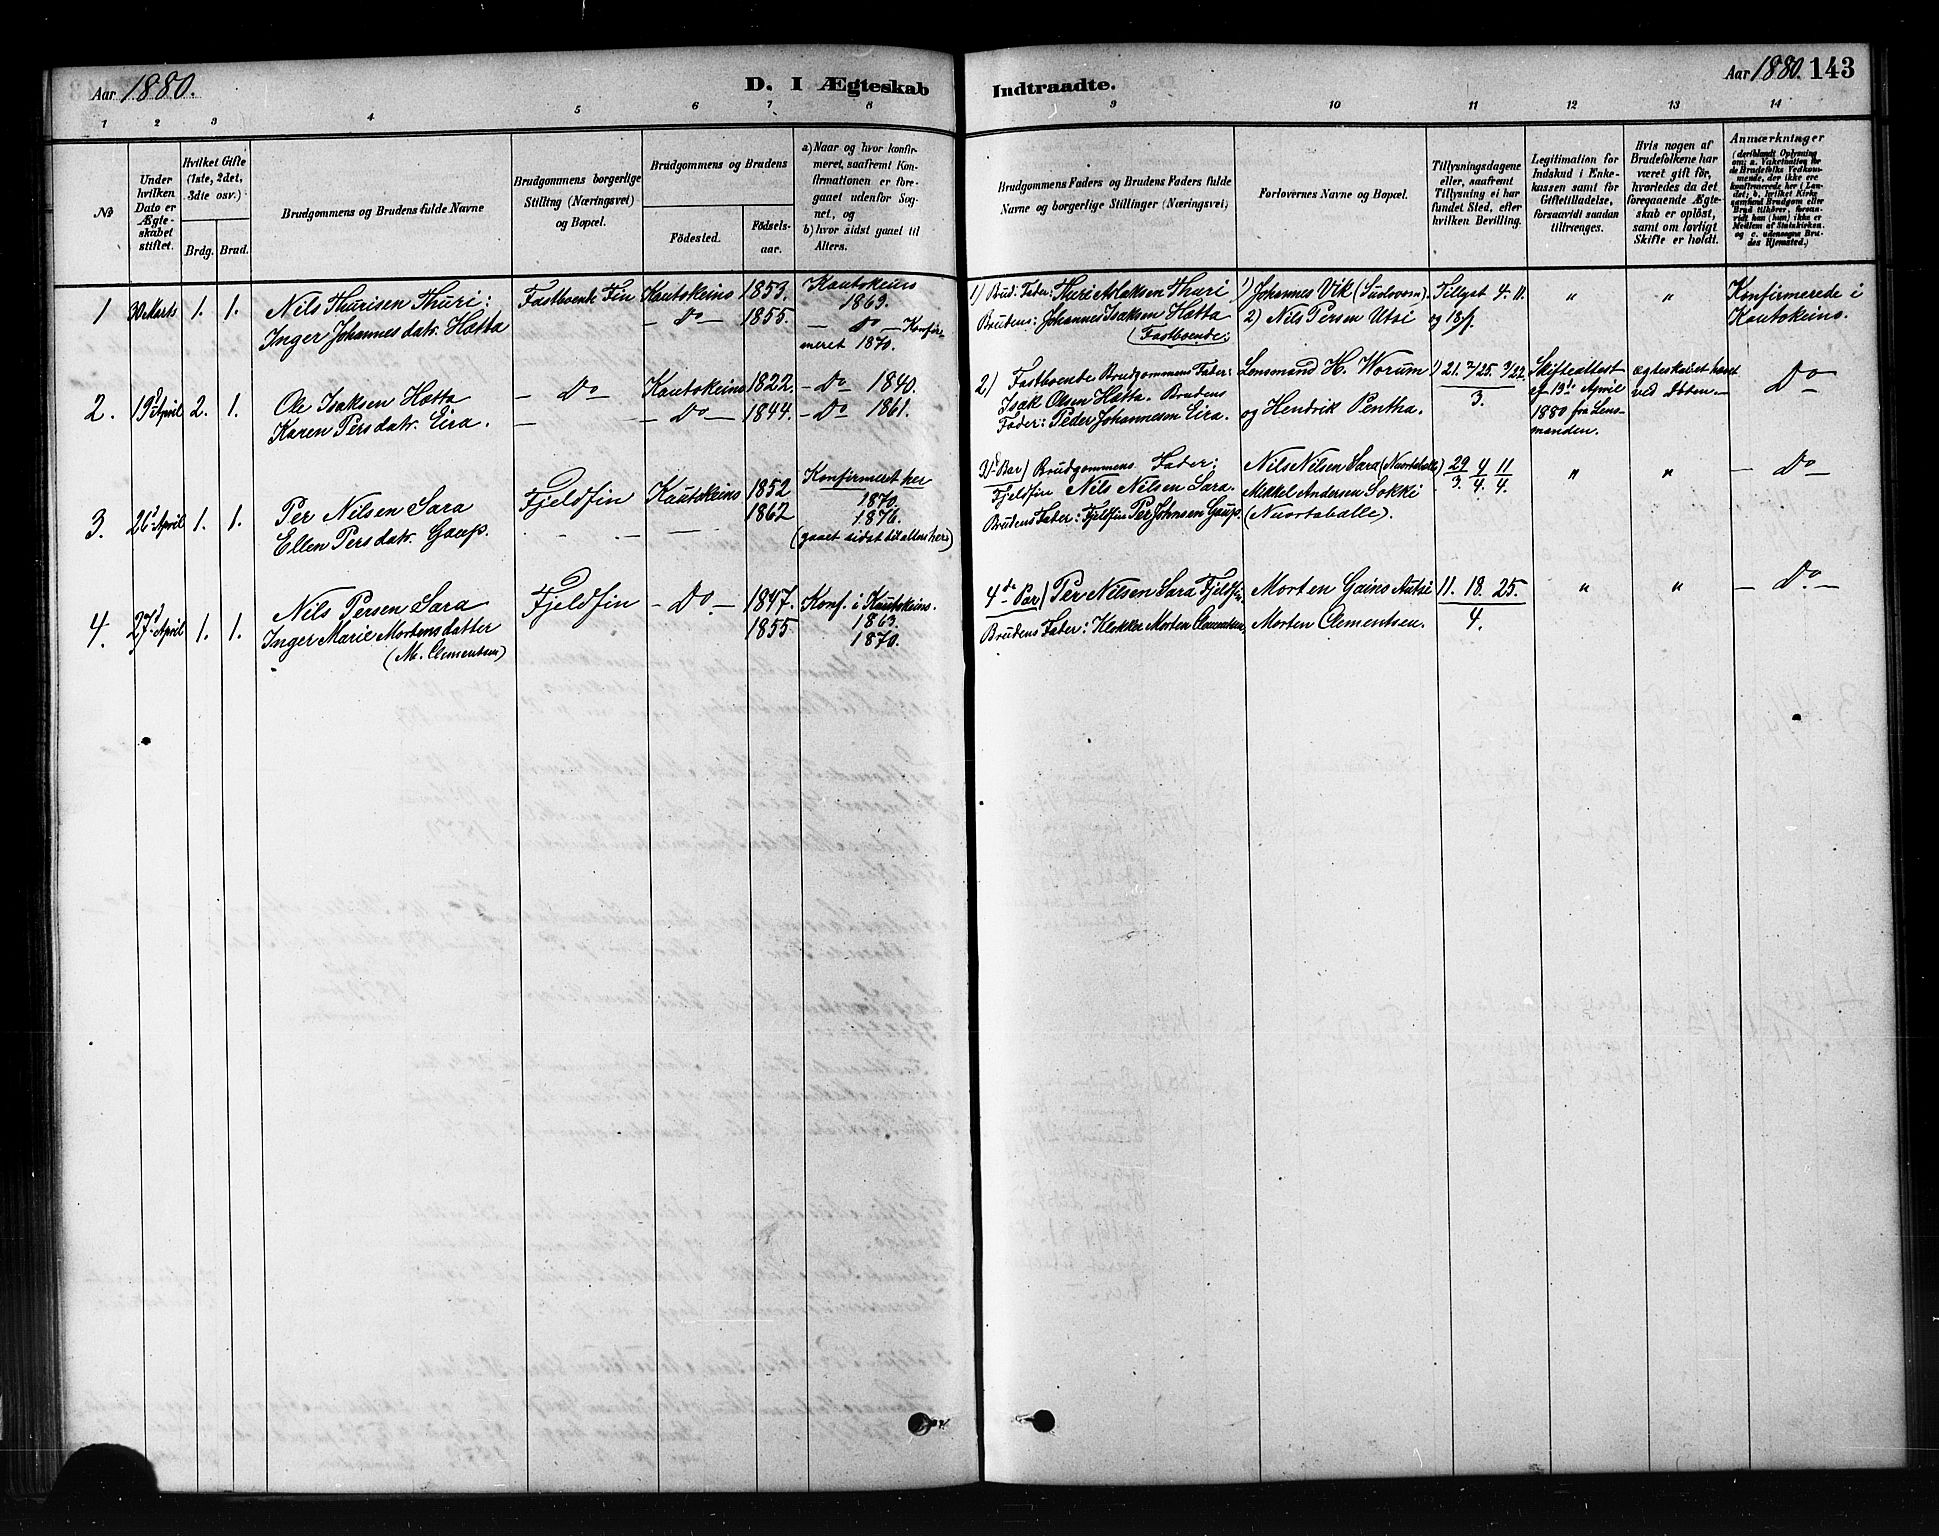 Aar 1880.
D. I Ægteskab
Indtraadte.
Aar 1880. 143
1 2 3 4 5 6 7 8 9 10 11 12 13 14
No
Under hvilken Dato er Ægteskabet stiftet.
Hvilket Gifte (1ste, 2det, 3die osv.)
Brdg. Brud.
Brudgommens og Brudens fulde Navne
Brudgommens borgerlige Stilling (Næringsvei) og Bopæl.
Brudgommens og Brudens
Fødested. Fødselsaar.
a) Naar og hvor konfirmeret, saafremt Konfirmationen er foregaaet udenfor Sognet, og
b) hvor sidst gaaet til Alters.
Brudgommens Faders og Brudens Faders fulde Navne og borgerlige Stillinger (Næringsvei)
Forlovernes Navne og Bopæl.
Tillysningsdagene eller, saafremt Tillysning ei har fundet Sted, efter hvilken Bevilling.
Legitimation for Indskud i Enkekassen samt for Giftetilladelse, forsaavidt saadan tiltrænges.
Hvis nogen af Brudefolkene har været gift før, hvorledes da det foregaaende Ægteskab er opløst, samt om lovligt Skifte er holdt.
Anmærkninger
(deriblandt Oplysning om: a. Vakcination for de Brudefolks Vedkommende, der ikke ere konfirmerede her i Landet; b. hvilket Kirkesamfund Brudgom eller Brud tilhører, forsavidt han (hun) ikke er Medlem af Statskirken, og c. udensogns Brudes Hjemsted.)
1 30 Marts 1. 1. Nils Thurisen Thuri:
Inger Johannesdatr. Hætta
Fastboende Fin
Kautokeino 1853.
— Do — 1855.
Kautokeino 1869.
— Do — Konfirmeret 1870.
1) Brud: Fader: Thuri Aslaksen Thuri
Brudens: Johannes Isaksen Hætta
(Fastboende:
1) Johannes Vik (Sudovom).
2) Nils Persen Utsi
Tillyst 4. 11.
og 18/
"
"
Konfirmerede i Kautokeino.
2. 19d April 2. 1. Ole Isaksen Hætta
Karen Persdatr. Eira.
— Do —
Kautokeino 1822.
— Do — 1844.
— Do — 1840.
— Do — 1861.
2) Fastboende Brudgommens Fader:
Isak Olsen Hætta. Brudens
Fader: Peder Johannesen Eira.
Lensmand H. Worum
og Hendrik Pentha.
Skifteattest
af 13d April
1880 fra Lensmanden.
ægteskabet hævet
ved Døden.—
Do
3. 26d April 1. 1. Per Nilsen Sara
Ellen Persdatr. Gaup.
Fjeldfin
Kautokeino 1852
1862
Konfirmeret her
1870.
1876.
(gaaet sidst til alters her)
Brudgommens Fader:
Fjeldfin Nils Nilsen Sara.
Brudens Fader: Fjeldfin Per Johnsen Gaup.
Nils Nilsen Sara (Nuortaballe)
Mikkel Andersen Sokki
(Nuortaballe).
29/3. 4/4. 11/4.
"
"
— Do —
4. 27d April 1. 1. Nils Persen Sara
Inger Marie Mortensdatter
(M. Clementsen)
Fjeldfin
— Do — 1847.
1855
Konf. i Kautokeino.
1863.
1870.
4de Par) Per Nilsen Sara Fjeldfin.
Brudens Fader: Klokker Morten Clementsen,
Morten Gains Autsi
Morten Clementsen.
11. 18. 25.
4.
"
"
— Do —